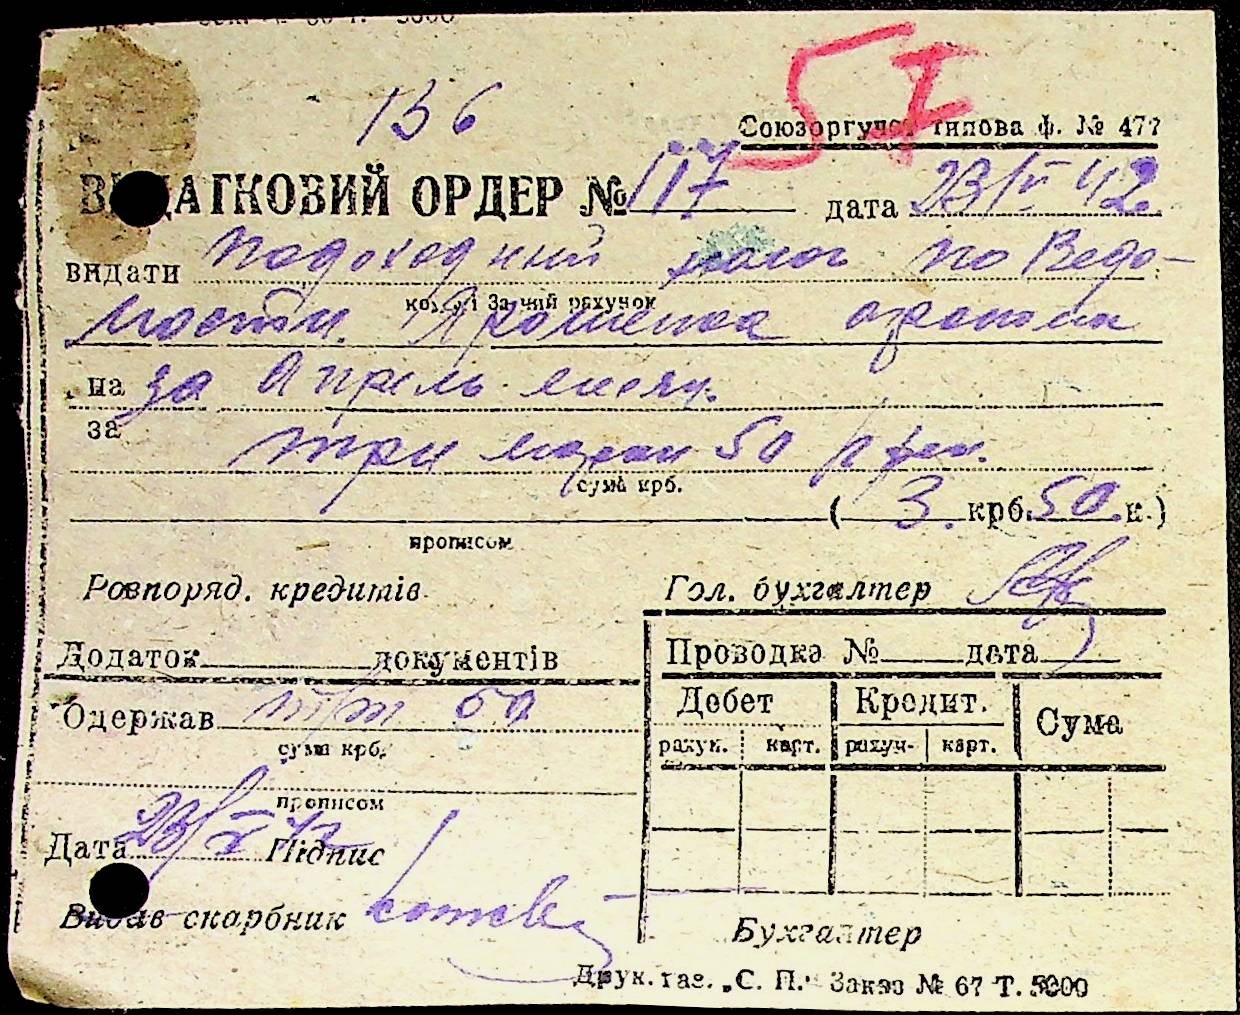 136
51
Союзоргучот типова ф. № 477
ВИДАТКОВИЙ ОРДЕР № 117 дата 23/V 42
видати подоходний налог по Ведо-
кому і За чий рахунок
мости.
на за Апрель месяц.
за
три марки 50 пфен.
сума крб.
( 3. крб. 50 к.)
прописом
Розпоряд. кредитів
Гол. бухгалтер
Додаток документів
Проводка № дата
Дебет Кредит. Сума
рахун. карт. рахун- карт.
Одержав три 50
сума крб.
прописом
Дата 23/V 42 Підпис
Видав скарбник
Бухгалтер
Друк. газ. „С. П." Заказ № 67 Т. 5000